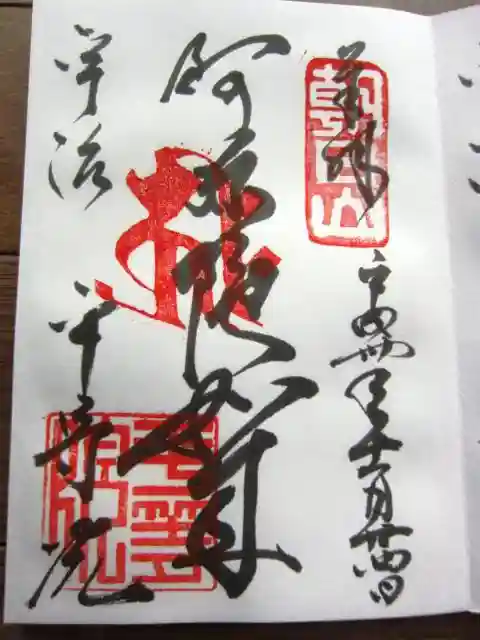 奉拝
朝日山
年十一月廿四日
阿弥陀如来
宇治
平等院